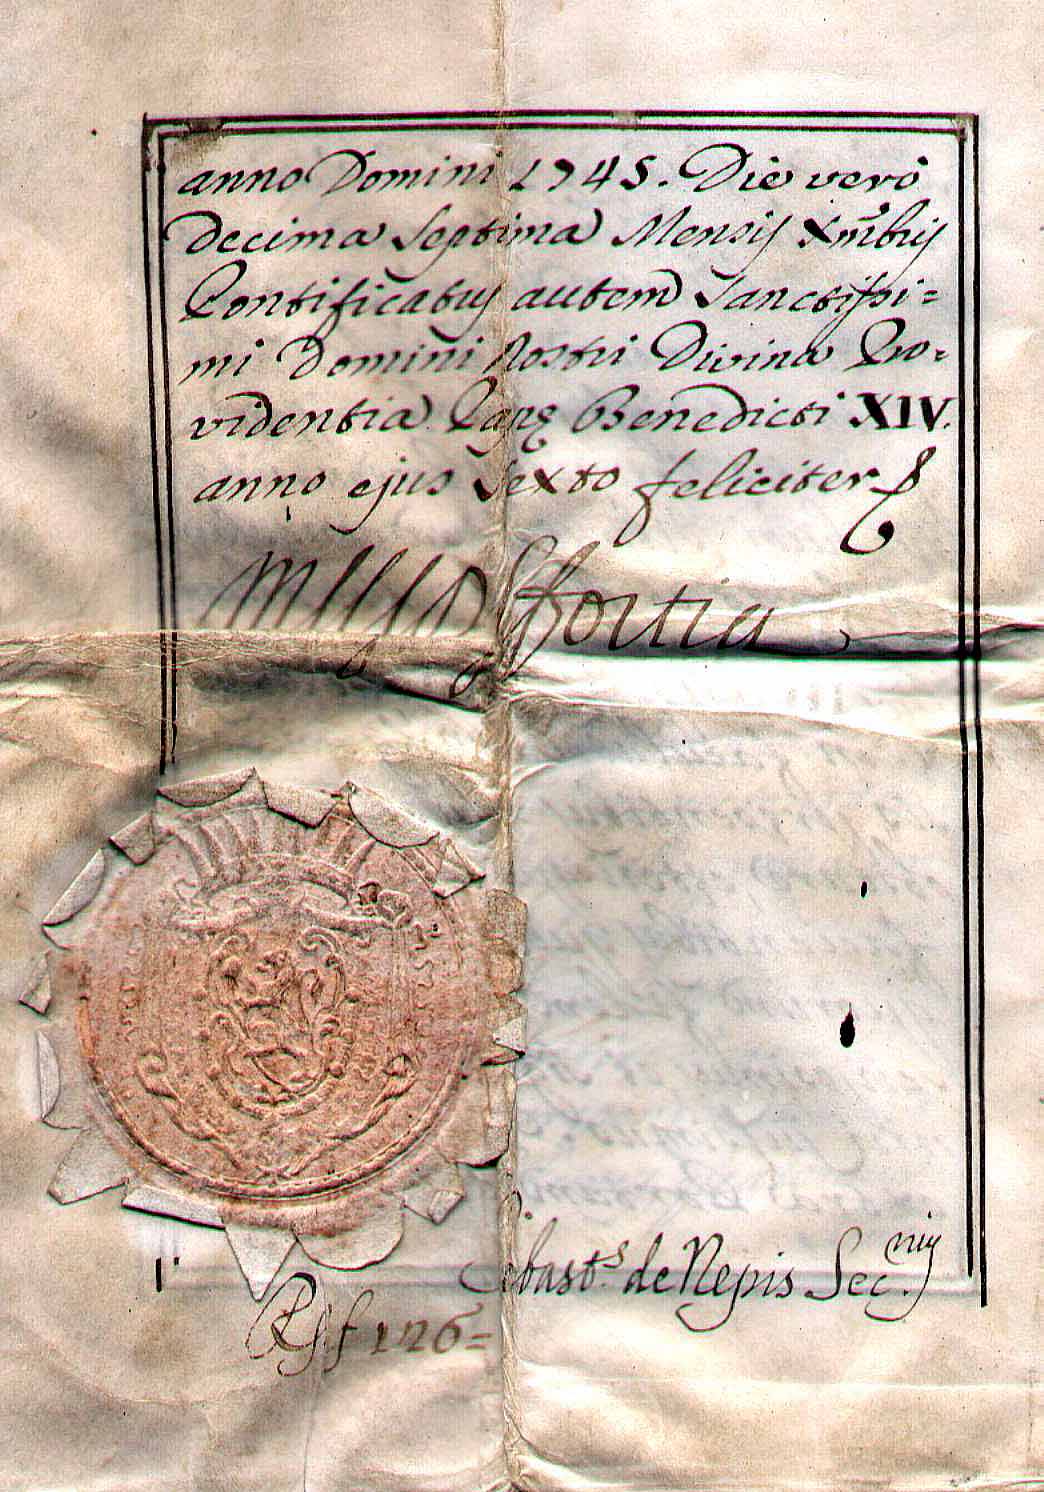 anno Domini 1745. Die verò
decima Septima Mensis Xm̃bris
Pontificatus autem Sanctissi=
mi Domini Nostri Divina Pro=
videntia Papę Benedicti XIV.
anno ejus Sexto feliciter
Sffortia
Sebast.s de Nepis Sec.rius
Rg f 126=